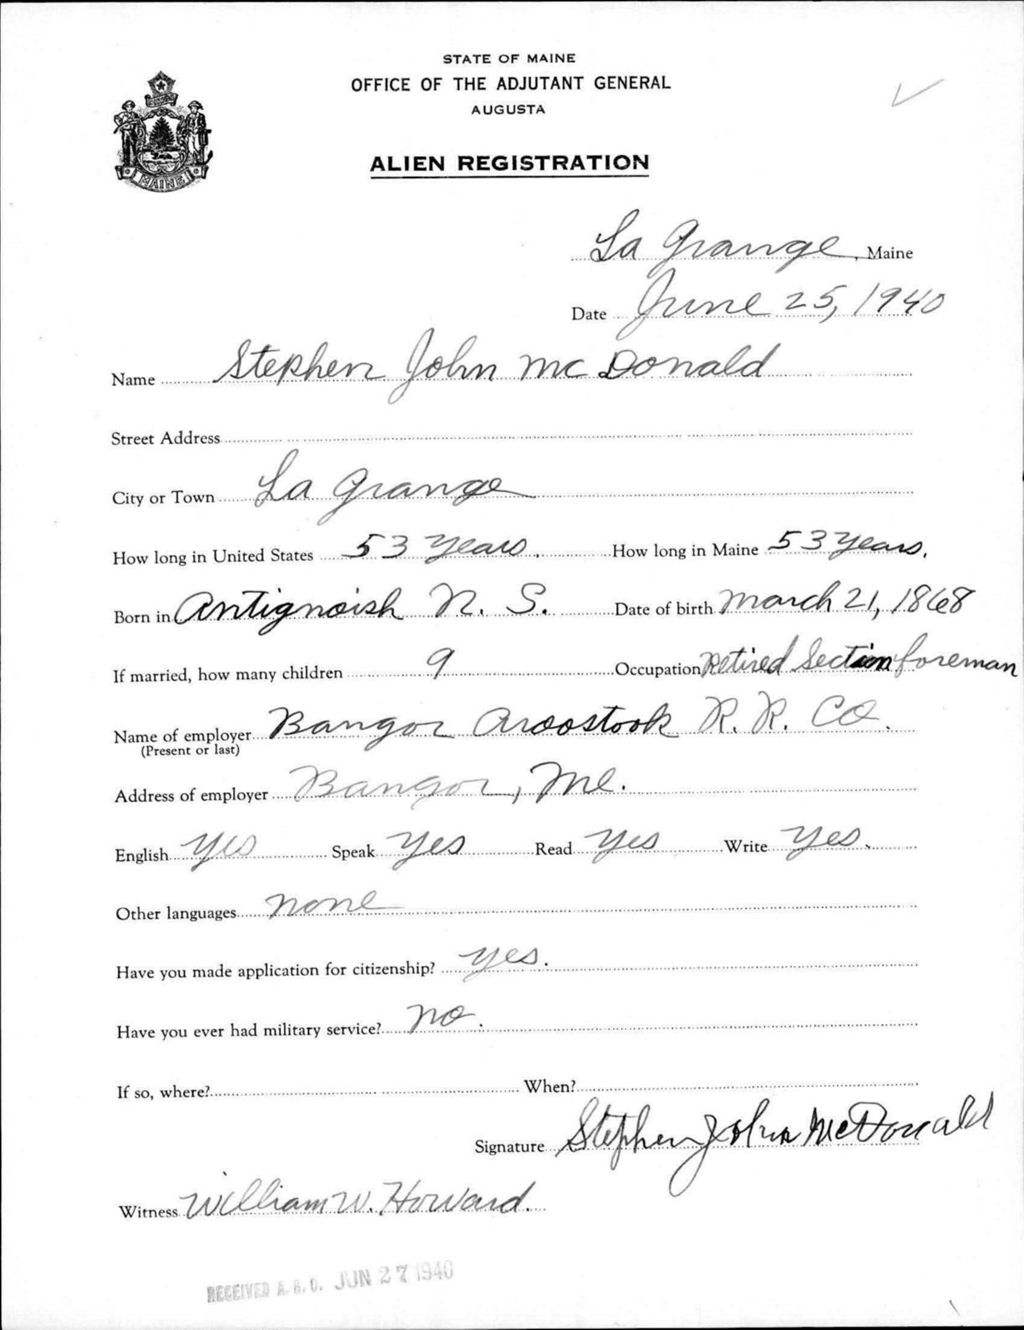 STATE OF MAINE
OFFICE OF THE ADJUTANT GENERAL
AUGUSTA
ALIEN REGISTRATION
MAINE
La Grange, Maine
Date June 25, 1940
Name Stephen John McDonald
Street Address
City or Town La Grange
How long in United States 53 years. How long in Maine 53 years.
Born in Antignoish N. S. Date of birth March 21, 1868
If married, how many children 9 Occupation Retired Section foreman
Name of employer Bangor Aroostook R. R. Co.
(Present or last)
Address of employer Bangor, Me.
English Yes Speak Yes Read Yes Write Yes.
Other languages none
Have you made application for citizenship? yes.
Have you ever had military service? no.
If so, where? When?
Signature Stephen John McDonald
Witness William W. Howard.
RECEIVED A. G. O. JUN 27 1940